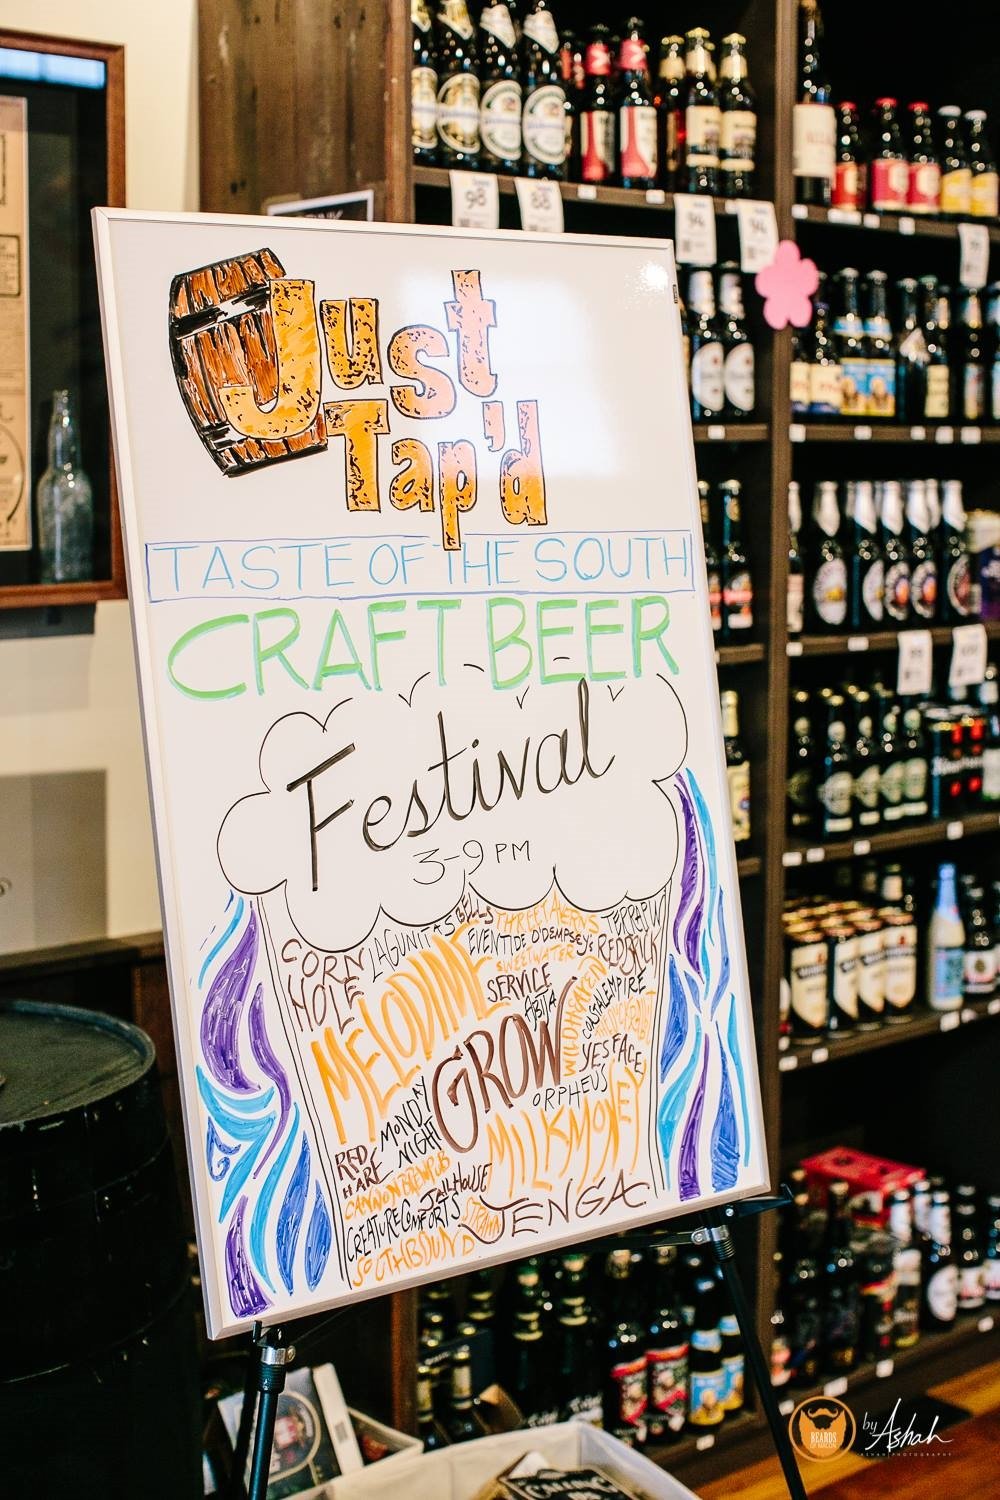 Just
Tap'd
TASTE OF THE SOUTH
CRAFT BEER
Festival
3-9 PM
CORN HOLE
LAGUNITAS
BELLS
THREE TAVERNS
TERRAPIN
EVENTIDE
O'DEMPSEY'S
REDBRICK
SWEETWATER
MELODIME
SERVICE
ABITA
WILD HEAVEN
COASTAL EMPIRE
GROW
YES FACE
ORPHEUS
MONDAY NIGHT
MILKMONEY
RED HARE
CANNON BREWPUB
JAILHOUSE
CREATURE COMFORTS
STRAWN
JENGA
SOUTHBOUND
98
88
94
94
BEARDS
OF MACON
by Ashah
ASHAH PHOTOGRAPHY